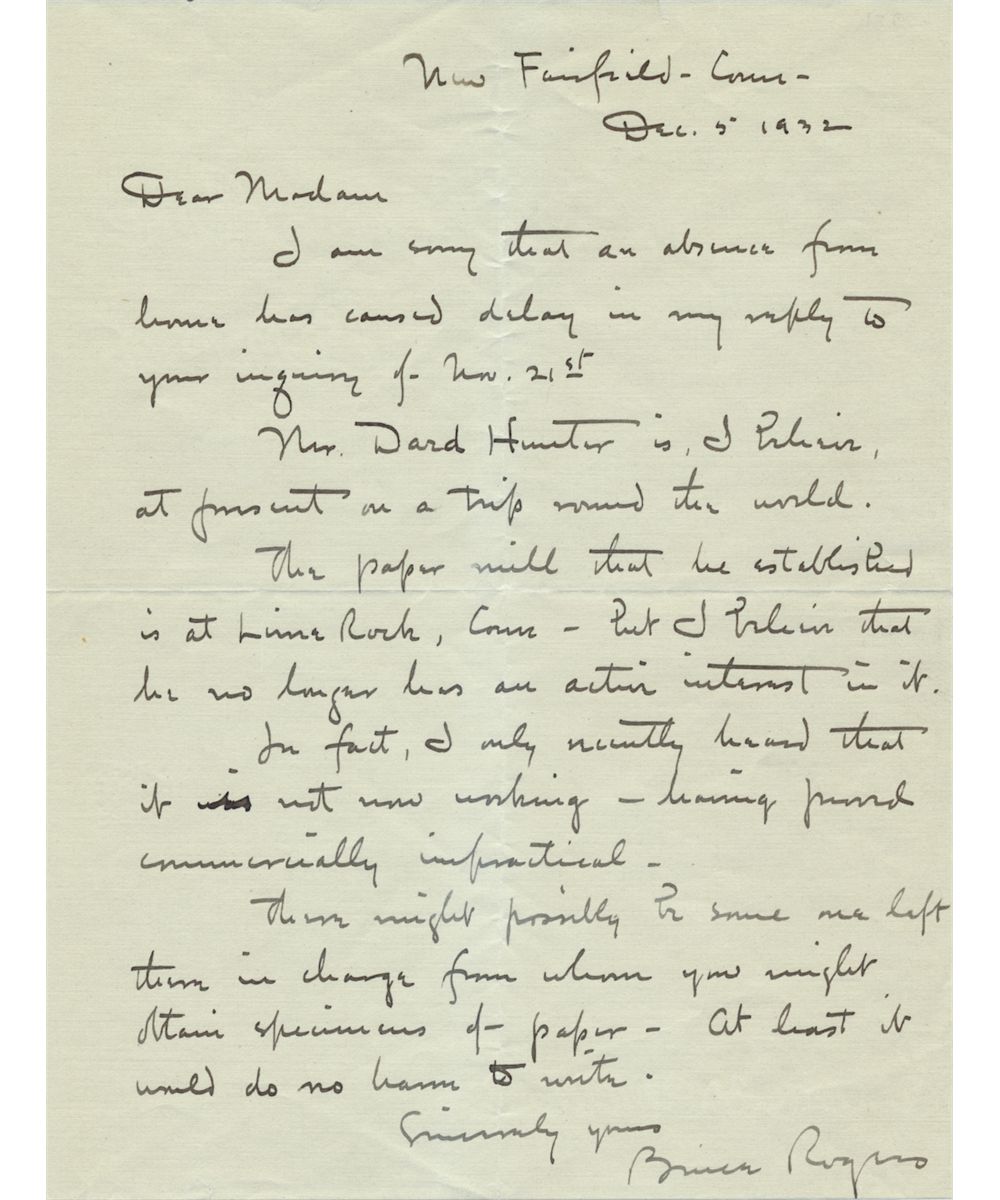 New Fairfield - Conn -
Dec. 5 1932
Dear Madam
I am sorry that an absence from
home has caused delay in my reply to
your inquiry of Nov. 21st
Mr. Dard Hunter is, I believe,
at present on a trip round the world.
The paper mill that he established
is at Lime Rock, Conn - but I believe that
he no longer has an active interest in it.
In fact, I only recently heard that
it is not now working - having proved
commercially impractical -
There might possibly be some one left
there in charge from whom you might
obtain specimens of paper - At least it
would do no harm to write.
Sincerely yours
Bruce Rogers